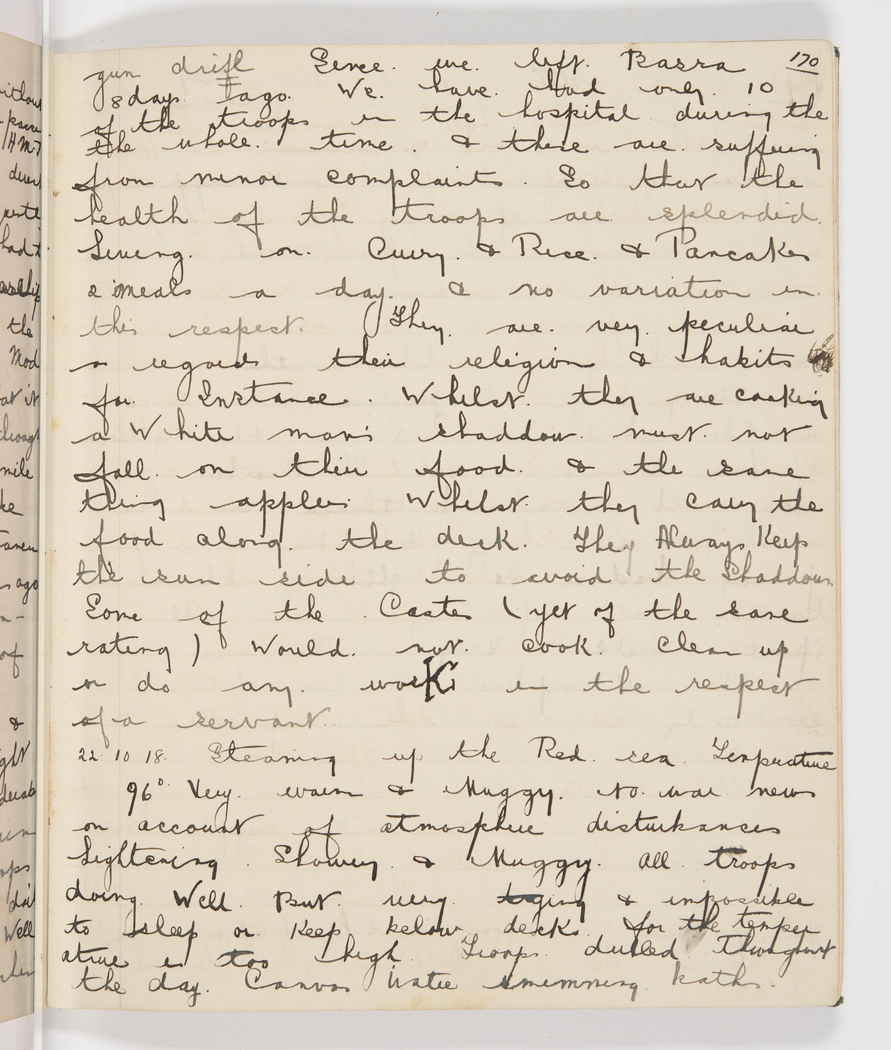 170
gun drill Since we left Basra
8 days ago. We have had only 10
of the troops in the hospital during the
the whole time. & these are suffering
from minor complaints. So that the
health of the troops are splendid.
Living on Curry & Rice & Pancakes
2 meals a day & no variation in
this respect. They are very peculiar
as regards their religion & habits
for Instance. Whilst they are cooking
a White man's shaddow must not
fall on their food. & the same
thing applies Whilst they carry the
food along the deck. They Always Keep
the sun side to avoid the Shaddow
Some of the Castes (yet of the same
rating) Would not cook. Clean up
or do any work in the respect
of a servant.
22.10.18. Steaming up the Red sea Temperature
96° Very warm & Muggy. No war news
on account of atmospheric disturbances
Lightening. Showery & Muggy. All troops
doing Well. But very & impossible
to sleep or Keep below decks for the temper
ature is too high. Troops drilled Throughout
the day. Canvas Water swimming baths.